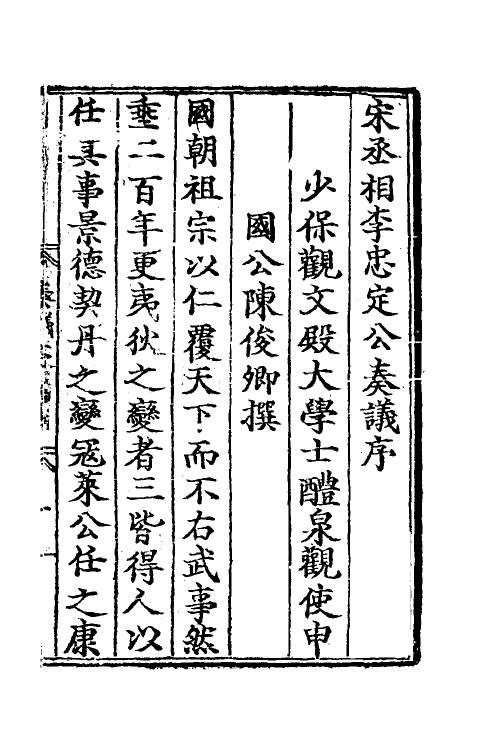 宋丞相李忠定公奏議序
少保觀文殿大學士醴泉觀使申
國公陳俊卿撰
國朝祖宗以仁覆天下而不右武事然
垂二百年更夷狄之變者三皆得人以
任其事景德契丹之變冦萊公任之康